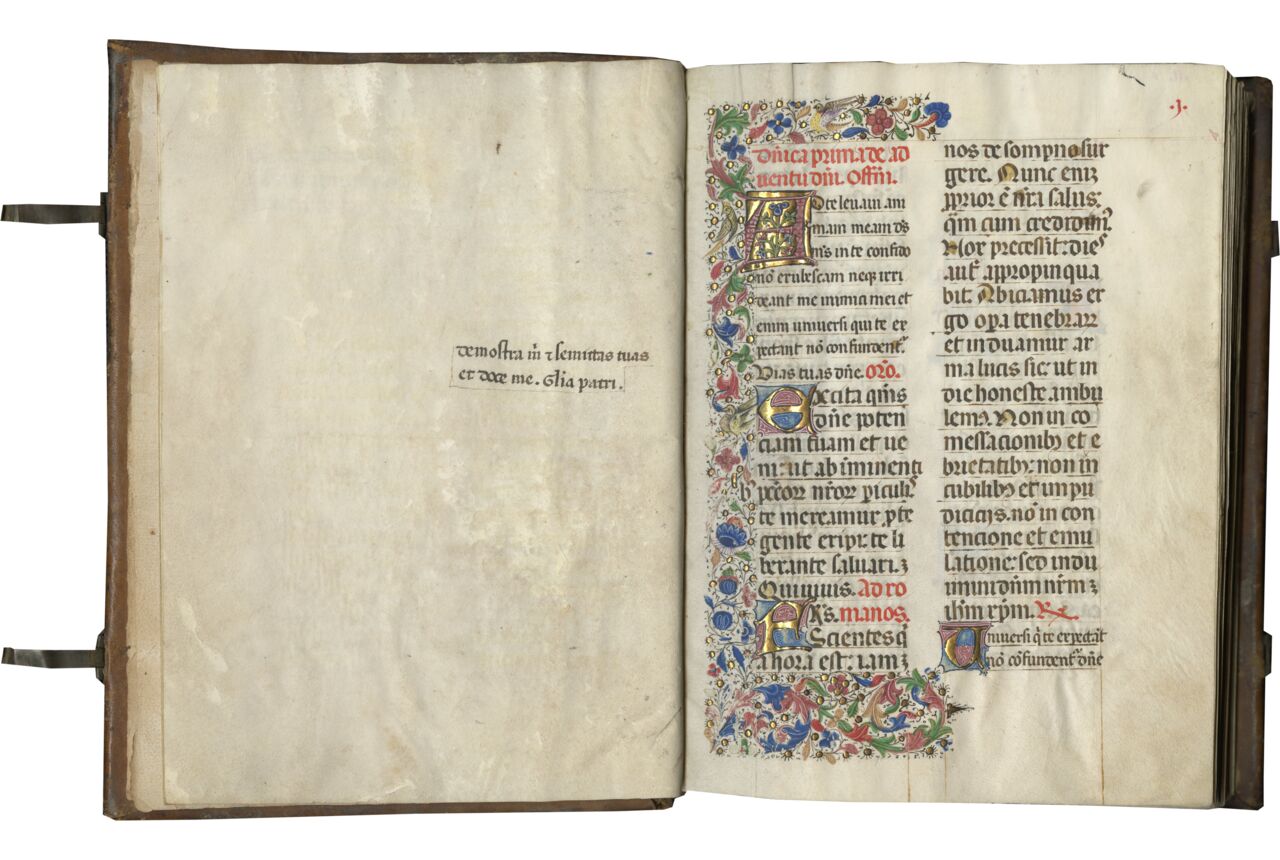 demostra m̄ ⁊ semitas tuas
et doce me. Gl̄ia patri.
.j.
Dn̄ica prima de ad
uentu dn̄i. Offm̄.
Ad te leuaui ani
mam meam ds̄
m̄s in te confido
nō erubescam neqꝫ irri
deant me inimici mei et
enim uniuersi qui te ex
pectant nō confundent̄.
Vias tuas dn̄e. Orō.
Excita qm̄s
dn̄e poten
ciam tuam et ue
ni: ut ab iminenti
bꝫ pc̄corꝝ nr̄orꝝ ꝑiculis
te mereamur ꝓte
gente eripi: te li
berante saluari. ⁊
Qui uiuis. Ad ro
FRs. manos.
Scientes q̄
a hora est: iam ⁊
nos de sompno sur
gere. Nunc enīꝫ
ꝓprior ē nr̄a salus:
qm̄ cum credidim̄.
Nox precessit: dies
aut̄ appropinqua
bit. Abiciamus er
go oꝑa tenebrarꝝ
et induamur ar
ma lucis sic: ut in
die honeste ambu
lemꝰ. Non in co
messacionibꝫ et e
brietatibꝫ: non in
cubilibꝫ et impu
dicicijs. nō in con
tencione et emu
latione: sed indu
imini dn̄m nr̄m ⁊
ih̄m xp̄m. Rx.
Uniuersi q̄ te expectāt
nō cōfundent̄ dn̄e